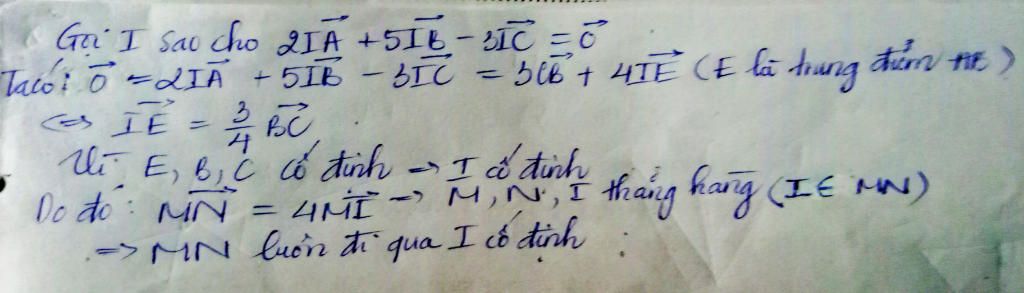 Gọi I sao cho 2IA⃗ + 5IB⃗ - 3IC⃗ = 0⃗
Ta có: 0⃗ = 2IA⃗ + 5IB⃗ - 3IC⃗ = 3CB⃗ + 4IE⃗ (E là trung điểm AB)
<=> IE⃗ = 3/4 BC⃗
Vì E, B, C cố định → I cố định
Do đó: MN⃗ = 4MI⃗ → M, N, I thẳng hàng (I ∈ MN)
=> MN luôn đi qua I cố định.